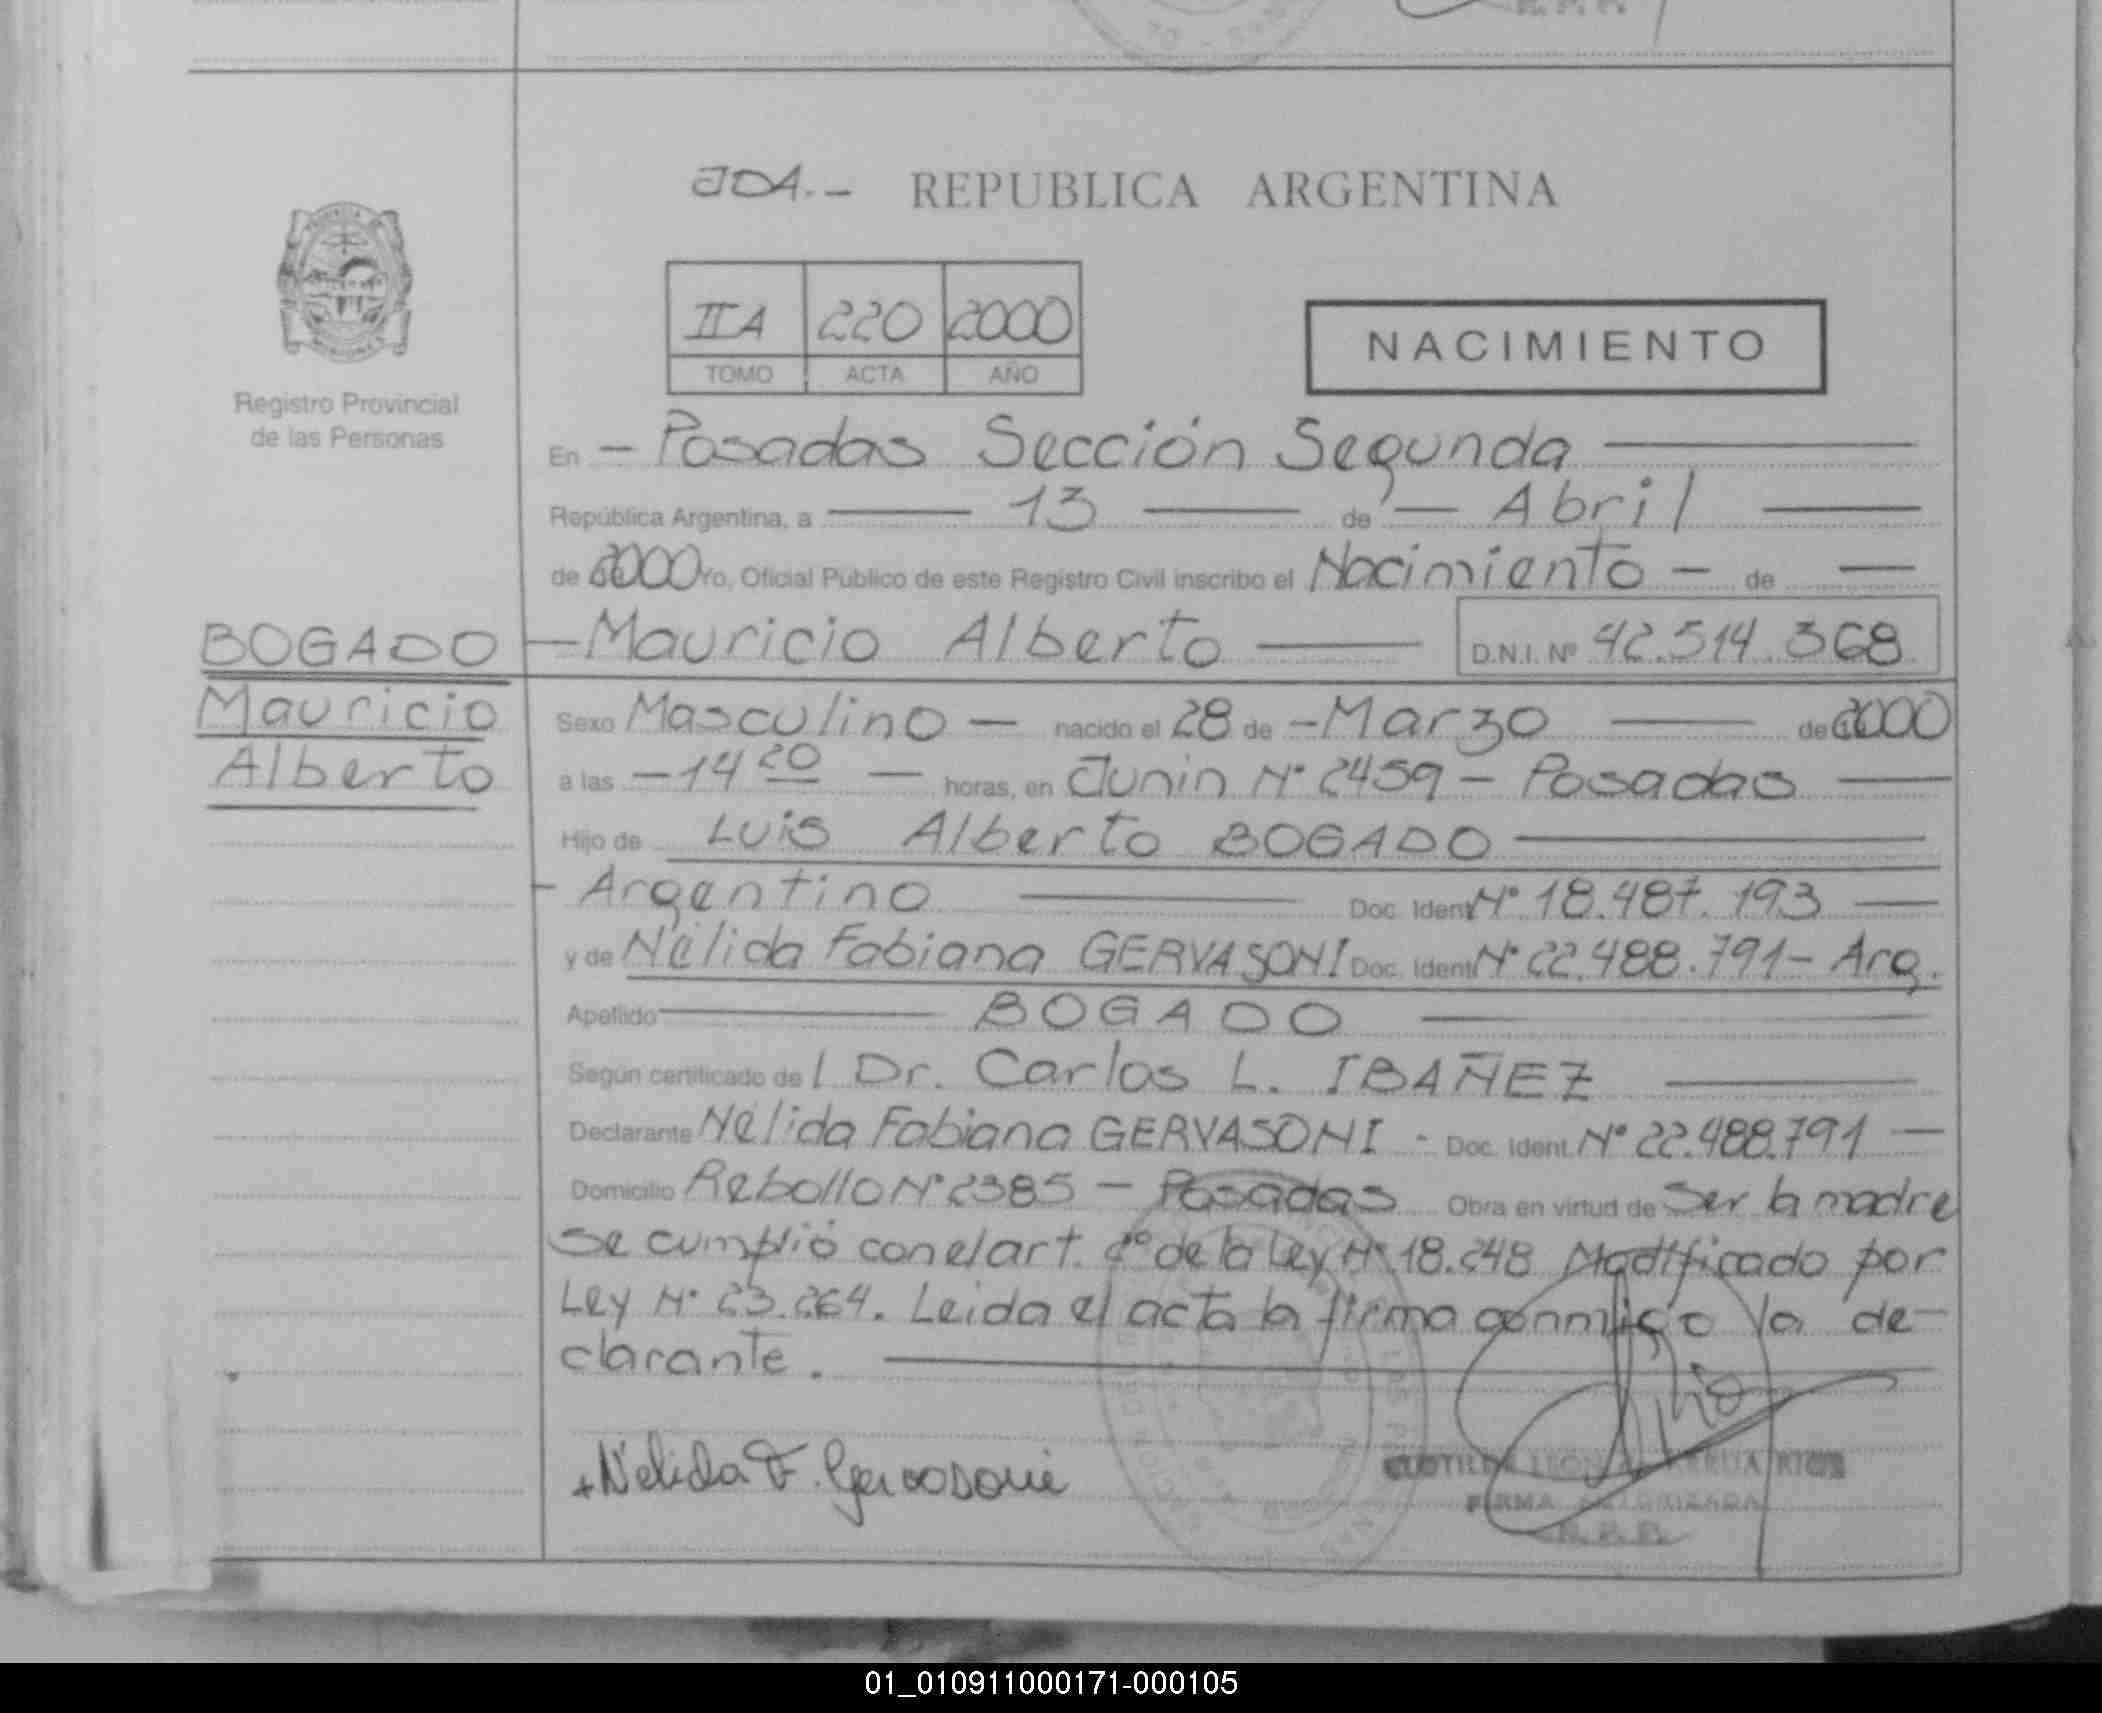 JOA.- REPUBLICA ARGENTINA
IIA 220 2000
TOMO ACTA AÑO
NACIMIENTO
Registro Provincial
de las Personas
En - Posadas Sección Segunda
República Argentina, a 13 de Abril
de 2000 Yo, Oficial Público de este Registro Civil inscribo el Nacimiento - de
BOGADO - Mauricio Alberto D.N.I. Nº 42.514.368
Mauricio
Alberto
Sexo Masculino - nacido el 28 de - Marzo de 2000
a las - 14 20 - horas, en Junin Nº 2459 - Posadas
Hijo de Luis Alberto BOGADO
- Argentino Doc. Ident Nº 18.487.193
y de Nélida Fabiana GERVASONI Doc. Ident Nº 22.488.791 - Arg.
Apellido BOGADO
Según certificado de l Dr. Carlos L. IBAÑEZ
Declarante Nélida Fabiana GERVASONI - Doc. Ident. Nº 22.488.791
Domicilio Rebollo Nº 2385 - Posadas Obra en virtud de Ser la madre
Se cumplió con el art. 2º de la Ley Nº 18.248 Modificado por
Ley Nº 23.264. Leida el acta la firma conmigo la de-
clarante.
Nelida F. Gervasoni
FIRMA AUTORIZADA
R.P.P.
01_010911000171-000105